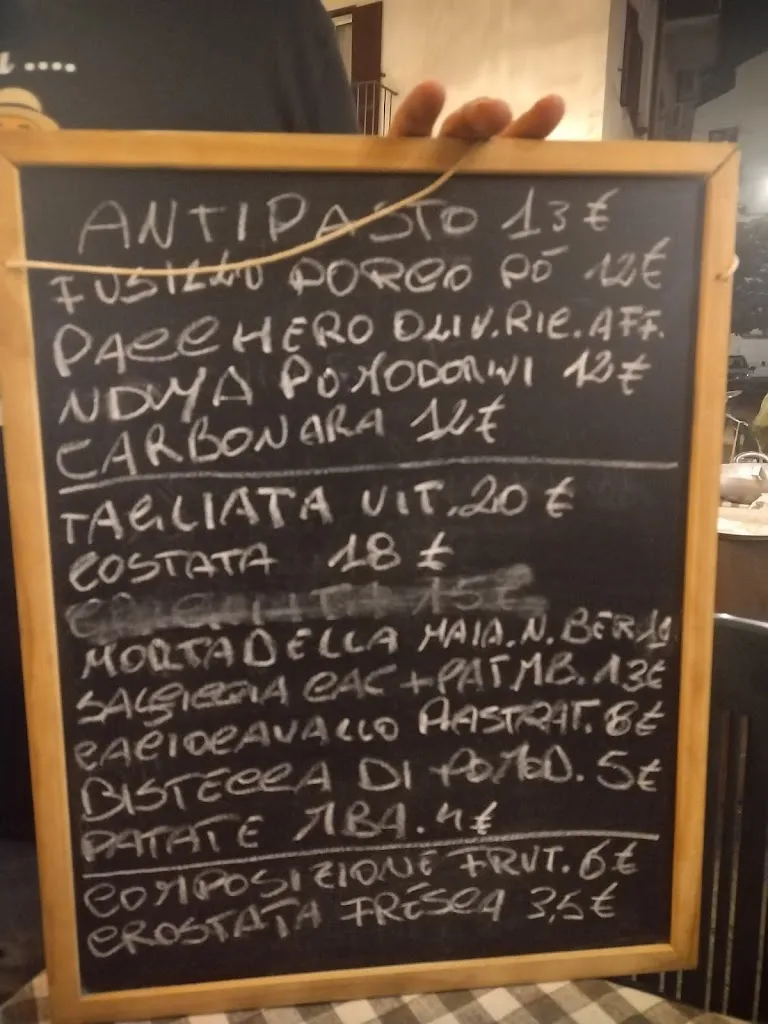 ANTIPASTO 13€
FUSILLO PORCO PÒ 12€
PACCHERO OLIV.RIC.AFF.
NDUYA POMODORINI 12€
CARBONARA 12€
TAGLIATA VIT.20 €
COSTATA 18 €
15€
MORTADELLA MAIA.N.BER
SALSICCIA CAC+PAT MB.13€
CACIOCAVALLO PIASTRAT.8€
BISTECCA DI POMOD.5€
PATATE 4€
COMPOSIZIONE FRUT.6€
CROSTATA FRESCA 3,5€